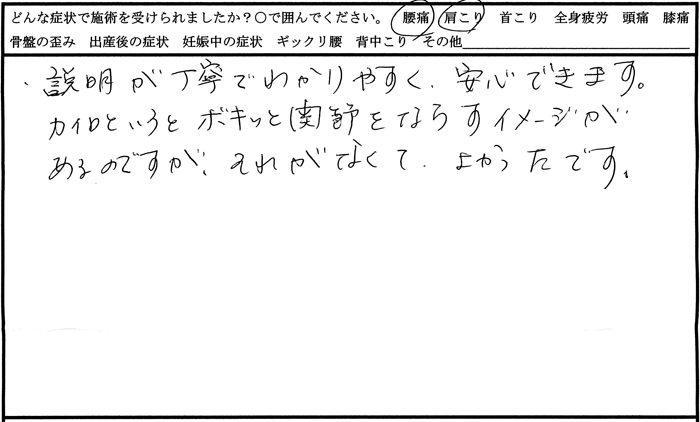 どんな症状で施術を受けられましたか？〇で囲んでください。 腰痛 肩こり 首こり 全身疲労 頭痛 膝痛
骨盤の歪み 出産後の症状 妊娠中の症状 ギックリ腰 背中こり その他
・説明が丁寧でわかりやすく、安心できます。
カイロというとボキッと関節をならすイメージが
あるのですが、それがなくて、よかったです。